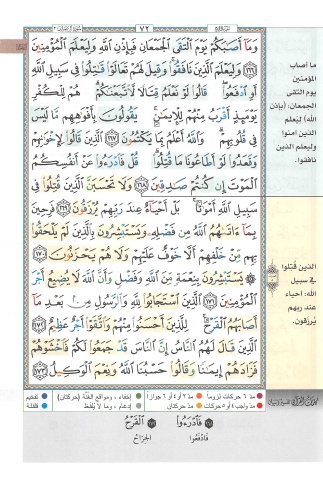 ٧٢
وَمَآ أَصَٰبَكُمْ يَوْمَ ٱلْتَقَى ٱلْجَمْعَانِ فَبِإِذْنِ ٱللَّهِ وَلِيَعْلَمَ ٱلْمُؤْمِنِينَ
١٦٦ وَلِيَعْلَمَ ٱلَّذِينَ نَافَقُوا۟ وَقِيلَ لَهُمْ تَعَالَوْا۟ قَٰتِلُوا۟ فِى سَبِيلِ ٱللَّهِ
أَوِ ٱدْفَعُوا۟ قَالُوا۟ لَوْ نَعْلَمُ قِتَالًا لَّٱتَّبَعْنَٰكُمْ هُمْ لِلْكُفْرِ
يَوْمَئِذٍ أَقْرَبُ مِنْهُمْ لِلْإِيمَٰنِ يَقُولُونَ بِأَفْوَٰهِهِم مَّا لَيْسَ
فِى قُلُوبِهِمْ وَٱللَّهُ أَعْلَمُ بِمَا يَكْتُمُونَ ١٦٧ ٱلَّذِينَ قَالُوا۟ لِإِخْوَٰنِهِمْ
وَقَعَدُوا۟ لَوْ أَطَاعُونَا مَا قُتِلُوا۟ قُلْ فَٱدْرَءُوا۟ عَنْ أَنفُسِكُمُ
ٱلْمَوْتَ إِن كُنتُمْ صَٰدِقِينَ ١٦٨ وَلَا تَحْسَبَنَّ ٱلَّذِينَ قُتِلُوا۟ فِى
سَبِيلِ ٱللَّهِ أَمْوَٰتًۢا بَلْ أَحْيَآءٌ عِندَ رَبِّهِمْ يُرْزَقُونَ ١٦٩ فَرِحِينَ
بِمَآ ءَاتَىٰهُمُ ٱللَّهُ مِن فَضْلِهِۦ وَيَسْتَبْشِرُونَ بِٱلَّذِينَ لَمْ يَلْحَقُوا۟
بِهِم مِّنْ خَلْفِهِمْ أَلَّا خَوْفٌ عَلَيْهِمْ وَلَا هُمْ يَحْزَنُونَ ١٧٠
يَسْتَبْشِرُونَ بِنِعْمَةٍ مِّنَ ٱللَّهِ وَفَضْلٍ وَأَنَّ ٱللَّهَ لَا يُضِيعُ أَجْرَ
ٱلْمُؤْمِنِينَ ١٧١ ٱلَّذِينَ ٱسْتَجَابُوا۟ لِلَّهِ وَٱلرَّسُولِ مِنۢ بَعْدِ مَآ
أَصَابَهُمُ ٱلْقَرْحُ لِلَّذِينَ أَحْسَنُوا۟ مِنْهُمْ وَٱتَّقَوْا۟ أَجْرٌ عَظِيمٌ ١٧٢
ٱلَّذِينَ قَالَ لَهُمُ ٱلنَّاسُ إِنَّ ٱلنَّاسَ قَدْ جَمَعُوا۟ لَكُمْ فَٱخْشَوْهُمْ
فَزَادَهُمْ إِيمَٰنًا وَقَالُوا۟ حَسْبُنَا ٱللَّهُ وَنِعْمَ ٱلْوَكِيلُ ١٧٣
ما أصاب
المؤمنين
يوم التقى
الجمعان: (بإذن
الله) ليعلم
الذين آمنوا
وليعلم الذين
نافقوا.
الذين قُتِلوا
في سبيل
الله: أحياء
عند ربهم
يُرزقون.
مدّ ٦ حركات لزوماً مدّ ٢ أو ٤ أو ٦ جوازاً إخفاء، ومواقع الغُنَّة (حركتان) تفخيم
مدّ واجب ٤ أو ٥ حركات مدّ حركتان إدغام، وما لا يُلفَظ قلقلة
فَٱدْرَءُوا۟ ٱلْقَرْحُ
فَادْفَعُوا الجِرَاحُ